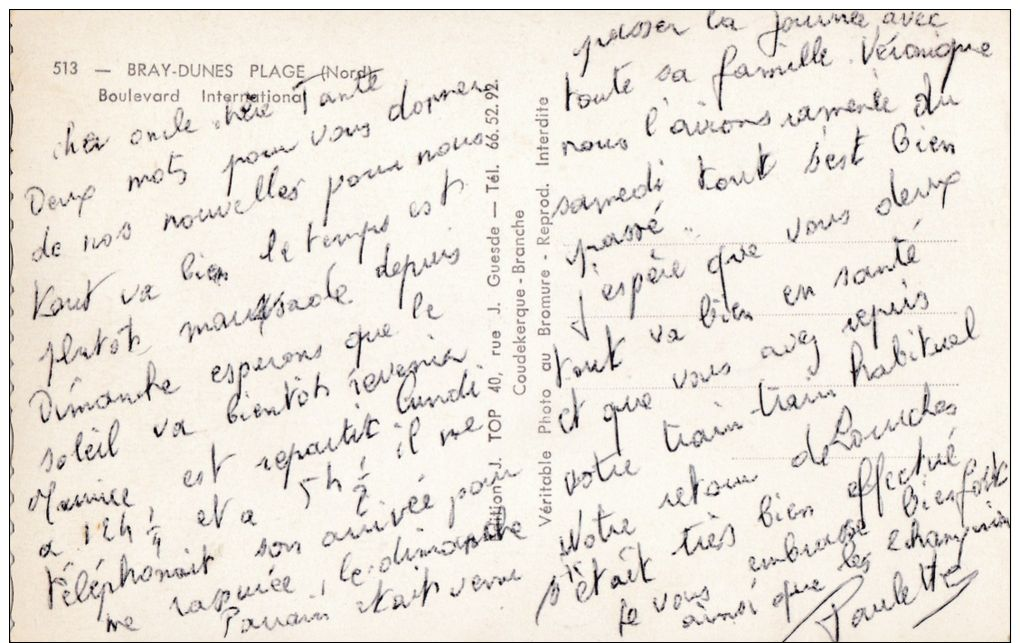 513 — BRAY-DUNES PLAGE (Nord)
Boulevard International
cher oncle chère Tante
Deux mots pour vous donner
de nos nouvelles pour nous
tout va bien le temps est
plutôt maussade depuis
Dimanche esperons que le
soleil va bientôt revenir
Maurice est repartit lundi
a 12h 1/4 et a 5h 1/2 il me
téléphonait son arrivée pour
me rassurée, le dimanche
Parrain était venu
Edition J. TOP 40, rue J. Guesde — Tél. 66.52.92.
Coudekerque-Branche
Véritable Photo au Bromure - Reprod. Interdite
passer la journée avec
toute sa famille Véronique
nous l'avions ramenée du
samedi tout s'est bien
passé
J'espère que vous deux
tout va bien en santé
et que vous avez repris
votre train-train habituel
Notre retour de Lourches
s'était très bien effectué
Je vous embrasse bien fort
ainsi que les
Paulette